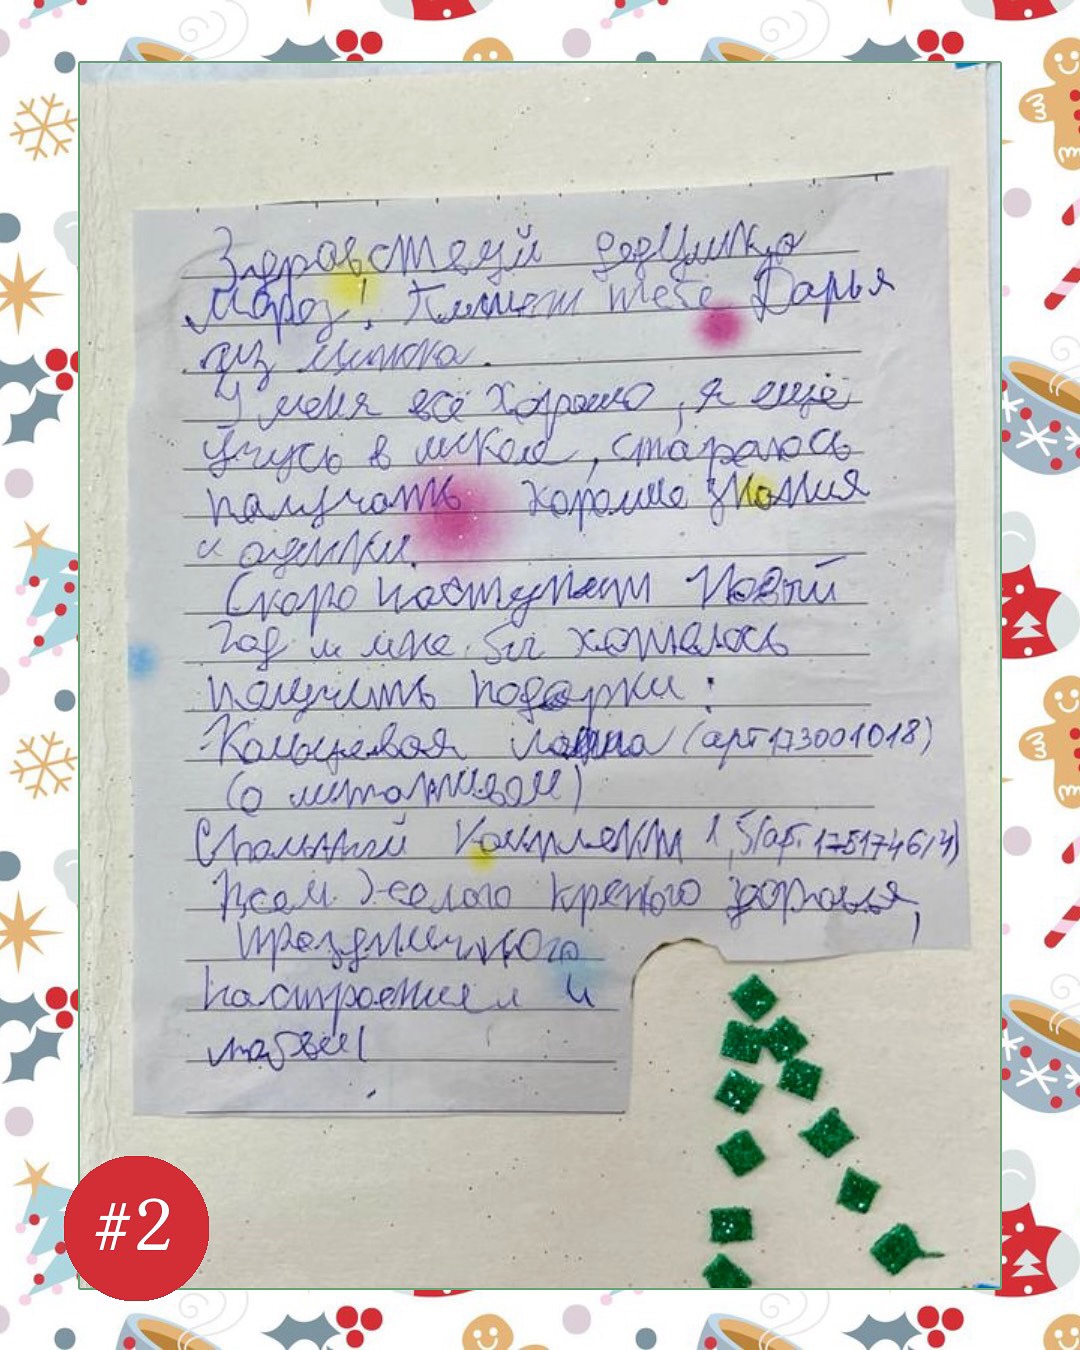 Здравствуй дедушка
Мороз! Пишет тебе Дарья
из
У меня всё хорошо, я ещё
учусь в школе, стараюсь
получать хорошие знания
и оценки.
Скоро наступает Новый
год и мне бы хотелось
получить подарки:
Кольцевая лампа (арт 173001018)
(о штативом)
Спальный комплект 1,5(арт.
Всем желаю крепкого здоровья,
праздничного
настроения и
любви!
#2